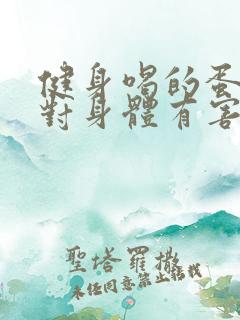 健身喝的蛋
對身體有害
聖塔羅撒
未經同意禁止轉載